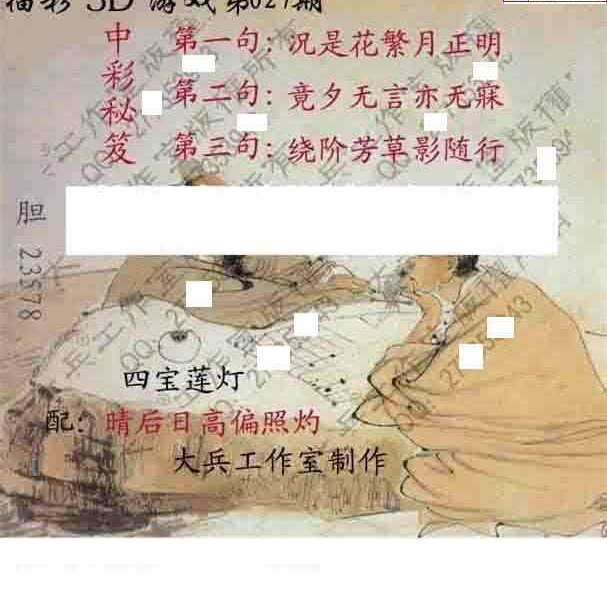 福彩 3D 游戏第027期
中彩秘笈
第一句：况是花繁月正明
第二句：竟夕无言亦无寐
第三句：绕阶芳草影随行
胆 23578
四宝莲灯
配：晴后日高偏照灼
大兵工作室制作